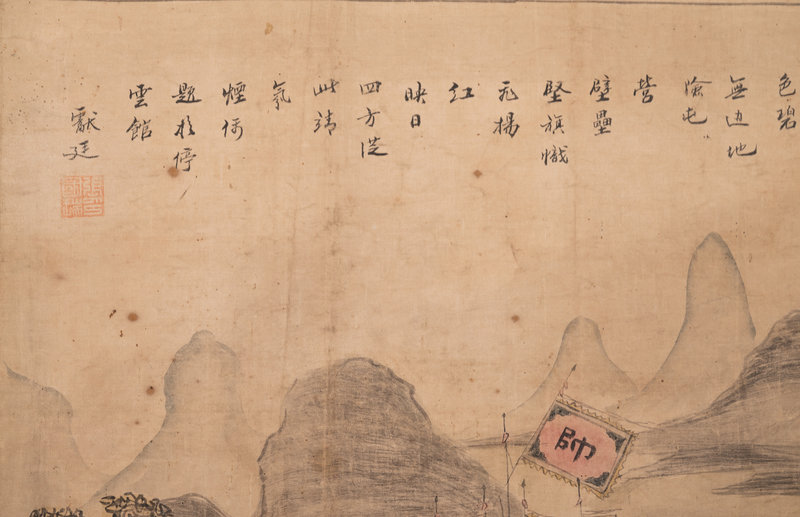 色碧
無边地
險屯
營
壁壘
堅旗幟
飛揚
紅
映日
四方從
此靖
氛
煙偶
題於停
雲館
獻廷
帥